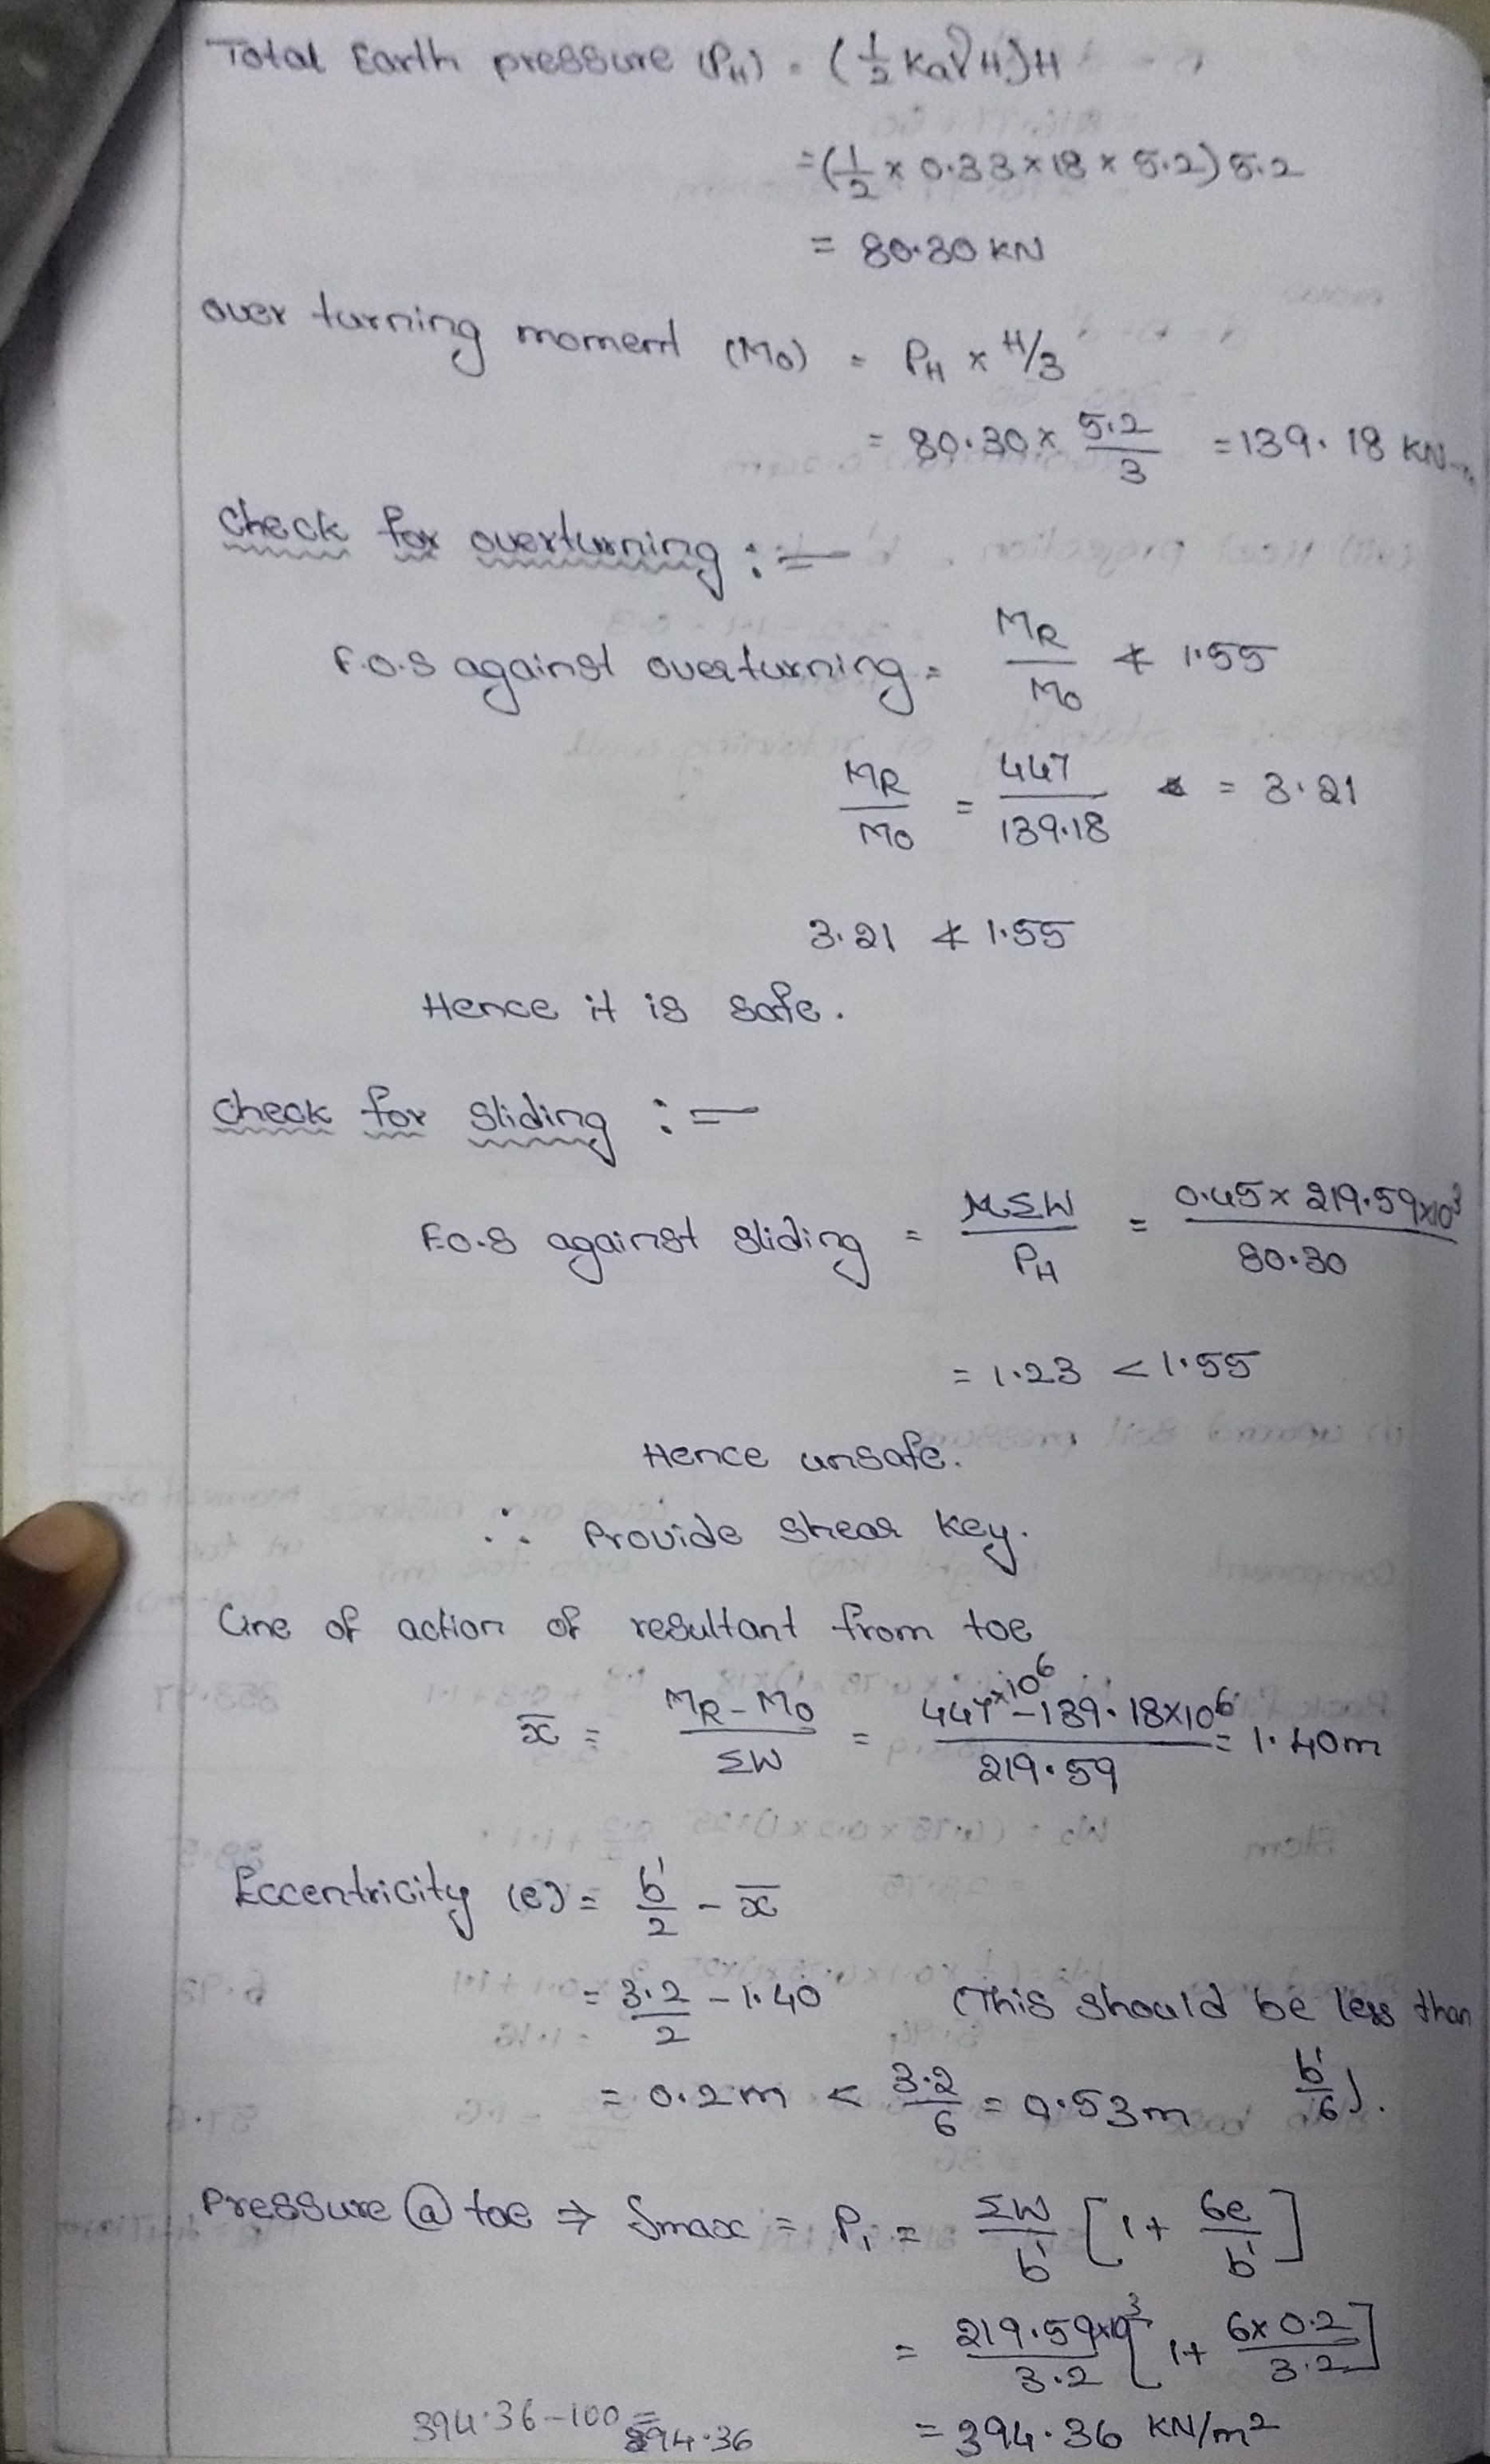 Total Earth pressure (PH) = (1/2 Ka γ H) H
= (1/2 × 0.33 × 18 × 5.2) 5.2
= 80.30 KN
over turning moment (Mo) = PH × H/3
= 80.30 × 5.2/3 = 139.18 KN-m
Check for overturning :=
F.O.S against overturning = MR/Mo ≮ 1.55
MR/Mo = 447/139.18 = 3.21
3.21 ≮ 1.55
Hence it is safe.
Check for sliding :=
F.O.S against sliding = μΣW/PH = 0.45 × 219.59×10³/80.30
= 1.23 < 1.55
Hence unsafe.
∴ Provide shear key.
Line of action of resultant from toe
x̄ = MR - Mo/ΣW = 447×10⁶ - 139.18×10⁶/219.59 = 1.40m
Eccentricity (e) = b'/2 - x̄
= 3.2/2 - 1.40 (This should be less than b'/6).
= 0.2m < 3.2/6 = 0.53m
Pressure @ toe ⇒ fmax = P1 = ΣW/b' [1 + 6e/b']
= 219.59×10³/3.2 [1 + 6×0.2/3.2]
= 394.36 KN/m²
394.36 - 100 =
294.36